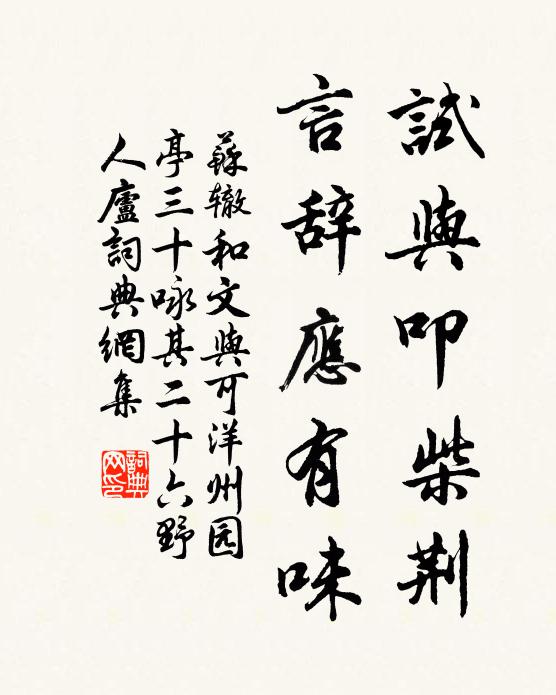 試與叩柴荆
言辞應有味
蘇辙和文與可洋州园
亭三十咏其二十六野
人廬詞典網集
詞典
网印